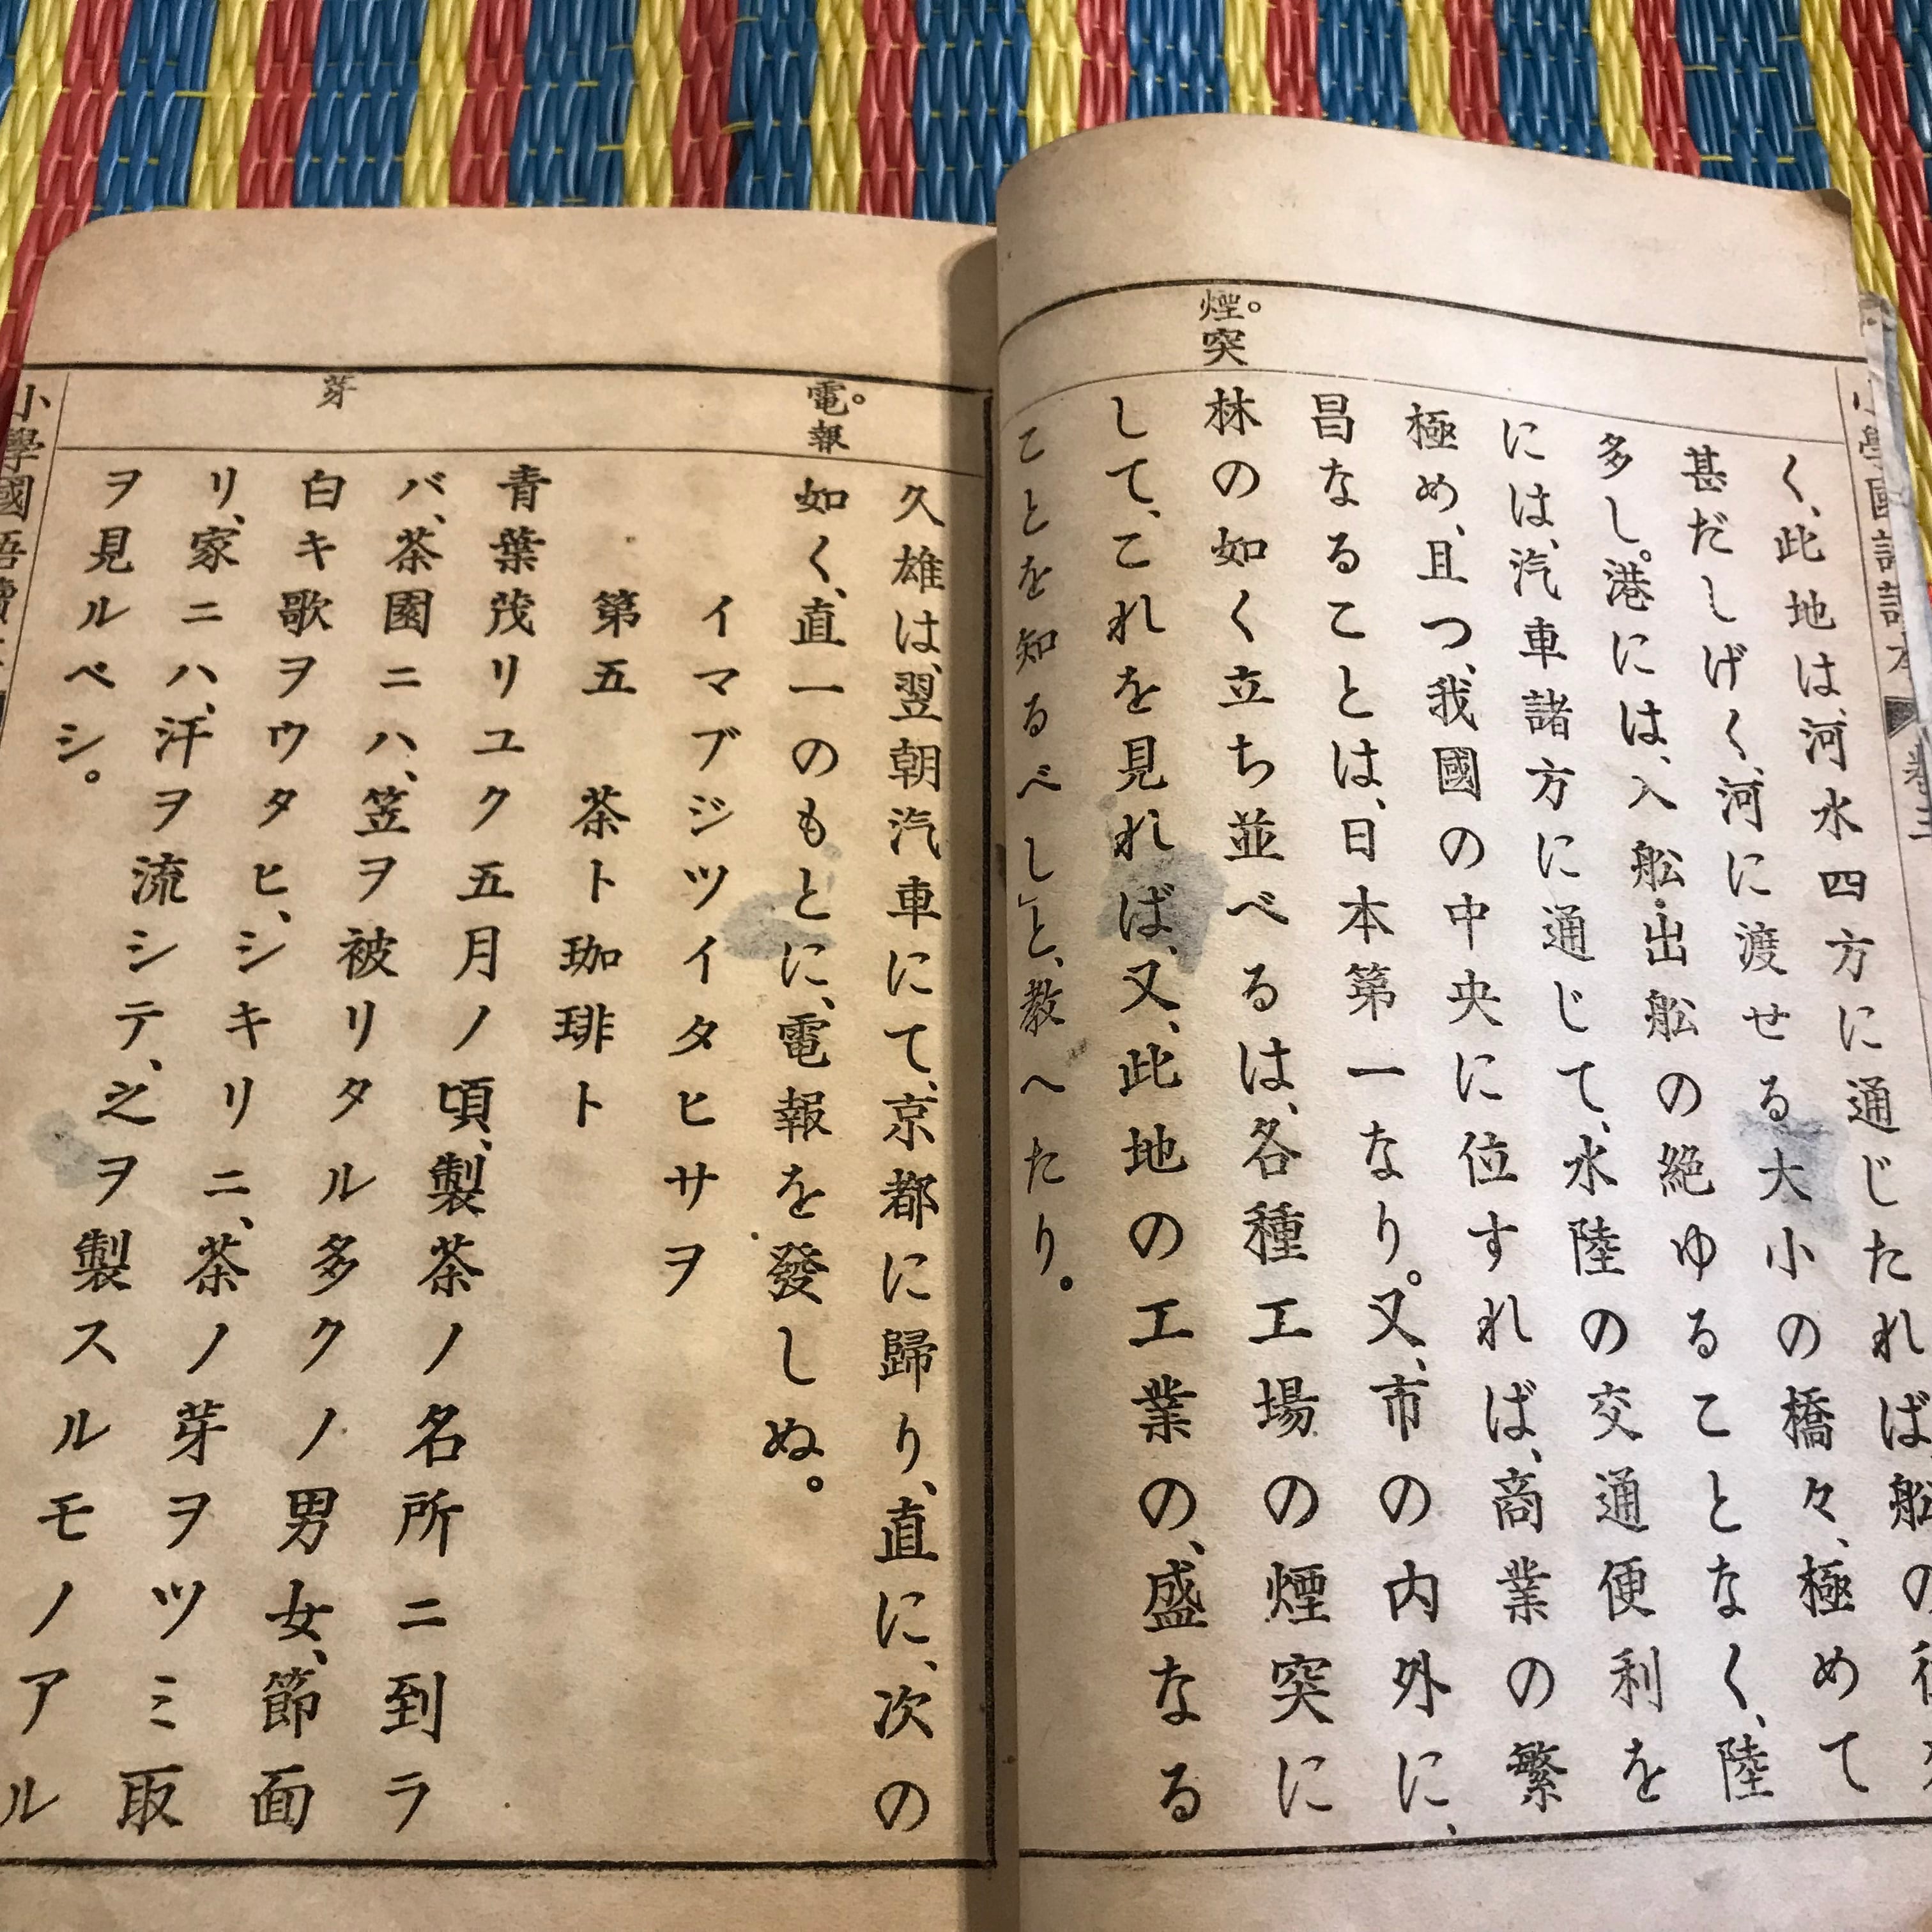 煙。突
く、此地は、河水四方に通じたれば、船の
甚だしげく、河に渡せる大小の橋々、極めて
多し。港には、入船・出船の絶ゆることなく、陸
には、汽車諸方に通じて、水陸の交通便利を
極め、且つ、我國の中央に位すれば、商業の繁
昌なることは、日本第一なり。又、市の内外に、
林の如く立ち並べるは、各種工場の煙突に
して、これを見れば、又、此地の工業の、盛なる
ことを知るべし」と、教へたり。
電。報
芽
久雄は、翌朝汽車にて、京都に歸り、直に、次の
如く、直一のもとに、電報を發しぬ。
イマブジツイタヒサヲ
第五 茶ト珈琲ト
青葉茂リユク五月ノ頃、製茶ノ名所ニ到ラ
バ、茶園ニハ、笠ヲ被リタル多クノ男女、節面
白キ歌ヲウタヒ、シキリニ、茶ノ芽ヲツミ取
リ、家ニハ、汗ヲ流シテ、之ヲ製スルモノアル
ヲ見ルベシ。
小學國語讀